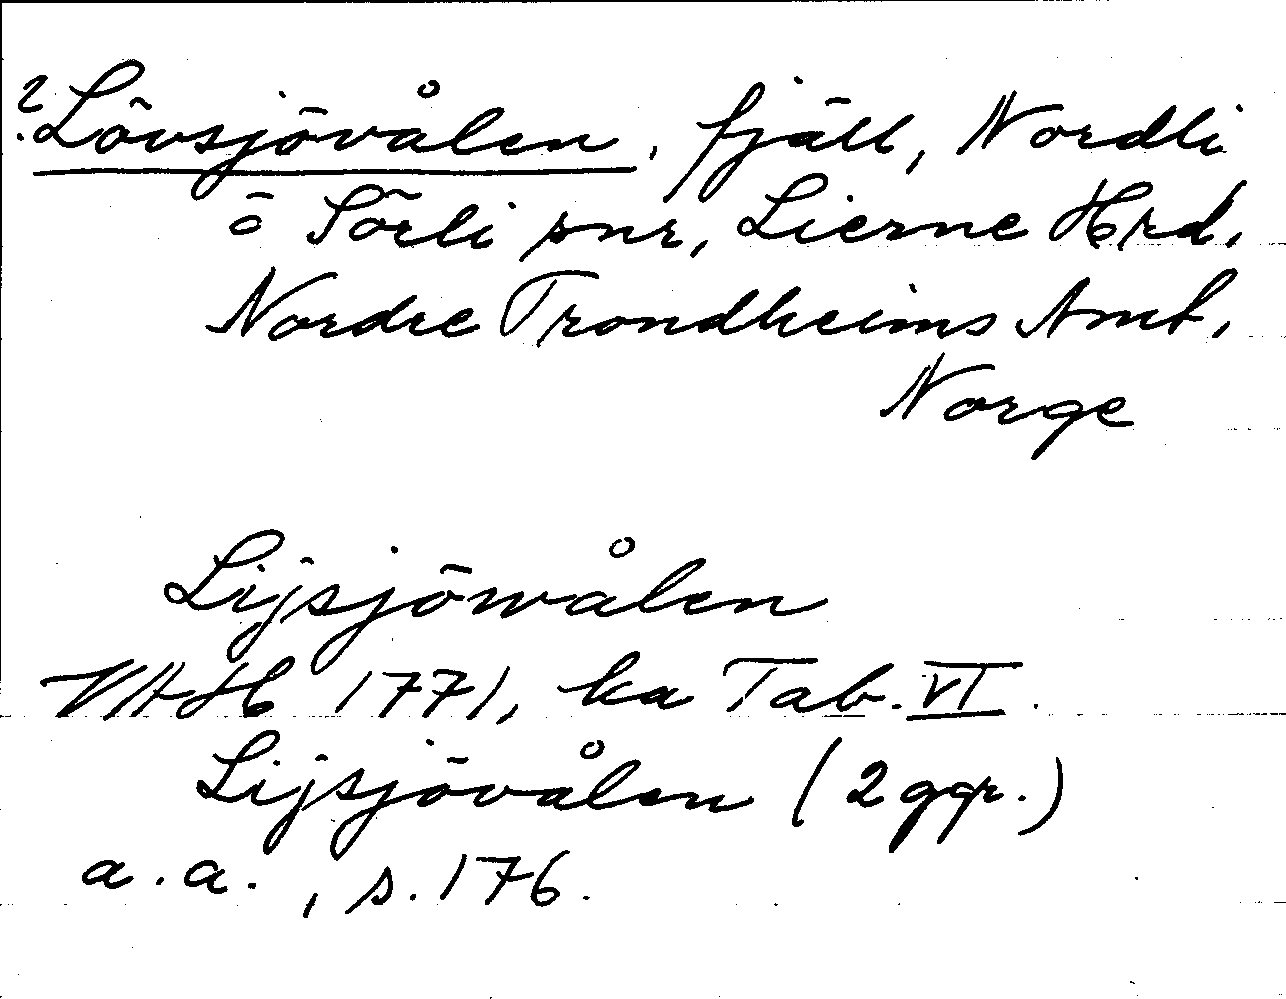 ? Lövsjövålen, fjäll, Nordli
o Sörli snr, Lierne Hrd.
Nordre Trondheims Amt,
Norge
Lijsjöwålen
VAH 1771, ka Tab. VI.
Lijsjövålen (2 ggr.)
a. a., s. 176.